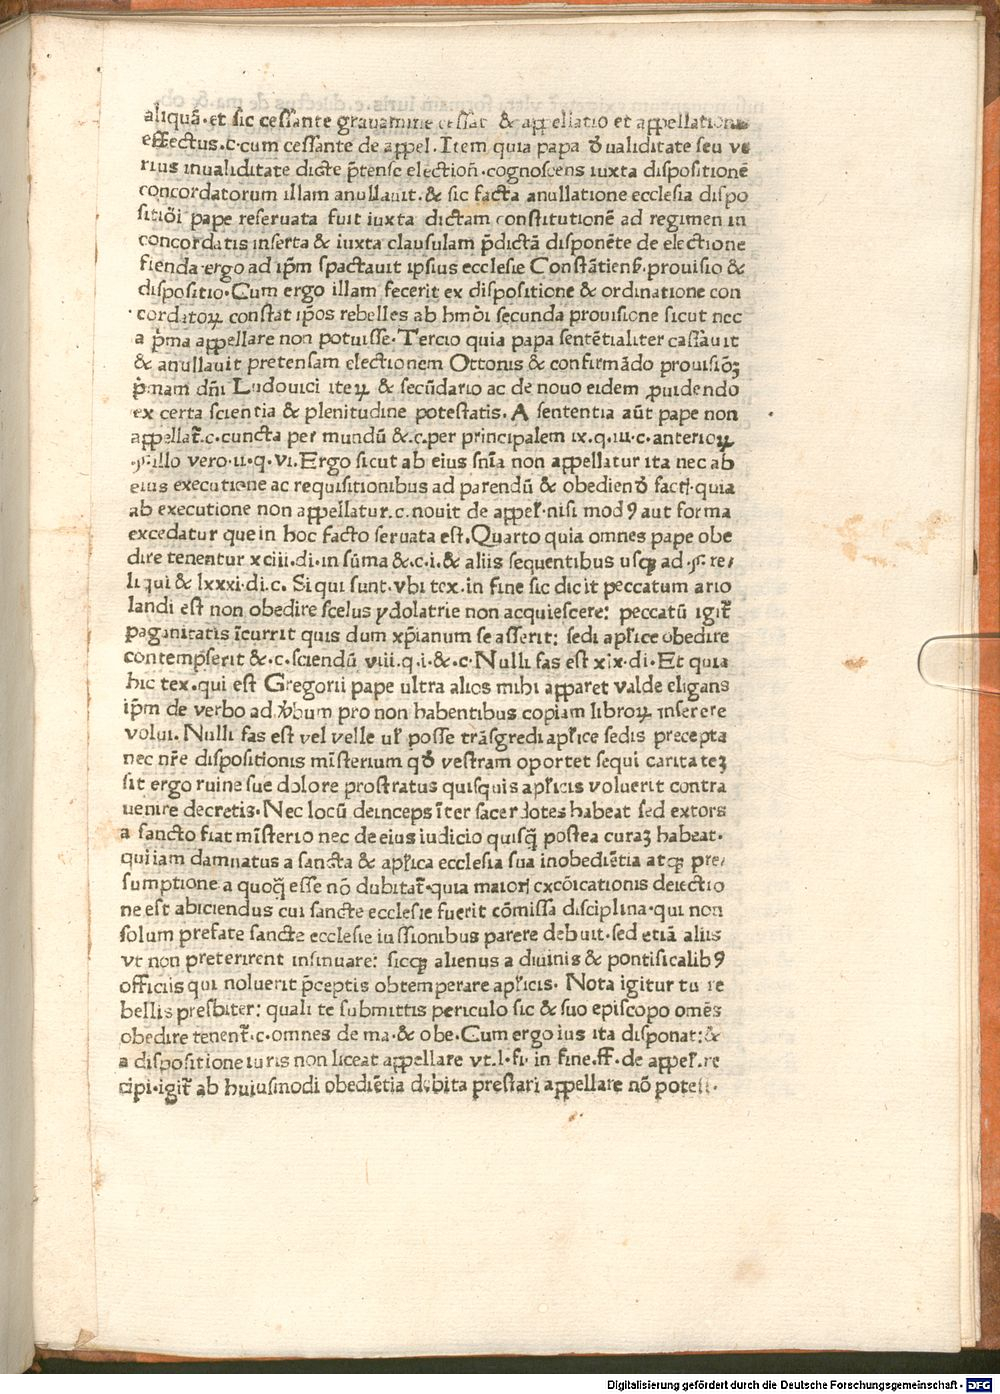 aliquã·et sic cessante grauamine cessat & appellatio et appellationis
effectus.c·cum cessante de appel. Item quia papa đ ualiditate seu ve
rius inualiditate dicte p̄tense election̄·cognoscens iuxta dispositionē
concordatorum illam anullauit.& sic facta anullatione ecclesia dispo
sitiōi pape reseruata fuit iuxta dictam constitutionē ad regimen in
concordatis inserta & iuxta clausulam p̄dictā disponēte de electione
fienda·ergo ad ip̄m spactauit ipsius ecclesie Constātienẞ.prouisio &
dispositio·Cum ergo illam fecerit ex dispositione & ordinatione con
cordatoꝝ constat ip̄os rebelles ab hmōi secunda prouisione sicut nec
a p̄ma appellare non potuisse·Tercio quia papa sentētialiter cassauit
& anullauit pretensam electionem Ottonis & confirmādo prouisiōꝫ
p̄mam dn̄i Ludouici iteꝝ & secūdario ac de nouo eidem ꝓuidendo
ex certa scientia & plenitudine potestatis. A sententia aūt pape non
appellat̄.c.cuncta per mundū &.c.per principalem ix.q.iii.c.anterioꝝ
.ꝭ.illo vero·ii·q.vi.Ergo sicut ab eius sn̄ia non appellatur ita nec ab
eius executione ac requisitionibus ad parendū & obedienđ facti·quia
ab executione non appellatur.c.nouit de appel̄·nisi modꝰ aut forma
excedatur que in hoc facto seruata est.Quarto quia omnes pape obe
dire tenentur xciii.di.in sūma &.c.i.& aliis sequentibus usqꝫ ad .ꝭ. re/
liqui & lxxxi.di.c. Si qui sunt.vbi tex.in fine sic dicit peccatum ario
landi est non obedire scelus ydolatrie non acquiescere: peccatū igit̄
paganitatis īcurrit quis dum xp̄ianum se asserit: sedi apl̄ice obedire
contempserit &.c.sciendū viii.q.i.&.c·Nulli fas est xix·di·Et quia
hic tex.qui est Gregorii pape ultra alios mihi apparet valde eligans
ip̄m de verbo ad v̄bum pro non habentibus copiam libroꝝ inserere
volui. Nulli fas est vel velle ul̄ posse trāsgredi apl̄ice sedis precepta
nec nr̄e dispositionis mīsterium qđ vestram oportet sequi caritateꝫ
sit ergo ruine sue dolore prostratus quisquis apl̄icis voluerit contra
uenire decretis·Nec locū deinceps īter sacerdotes habeat sed extors
a sancto fiat mīsterio nec de eius iudicio quisq̄ postea curaꝫ habeat·
qui iam damnatus a sancta & apl̄ica ecclesia sua inobediētia atqꝫ pre/
sumptione a quoq̄ esse nō dubitat̄·quia maiori excōicationis deiectio
ne est abiciendus cui sancte ecclesie fuerit cōmissa disciplina·qui non
solum prefate sancte ecclesie iussionibus parere debuit·sed etiā aliis
vt non preterirent insinuare: sicqꝫ alienus a diuinis & pontificalibꝰ
officiis qui noluerit p̄ceptis obtemperare apl̄icis. Nota igitur tu re
bellis presbiter: quali te submittis periculo sic & suo episcopo omēs
obedire tenent̄.c·omnes de ma·& obe·Cum ergo ius ita disponat:&
a dispositione iuris non liceat appellare vt.l·fi· in fine.ff·de appel̄.re
cipi·igit̄ ab huiusmodi obediētia debita prestari appellare nō potest·
Digitalisierung gefördert durch die Deutsche Forschungsgemeinschaft - DFG